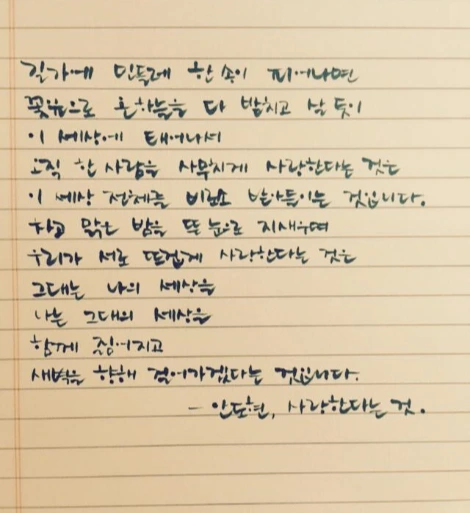 길가에 민들레 한 송이 피어나면
꽃잎으로 온 하늘을 다 받치고 살 듯이
이 세상에 태어나서
오직 한 사람을 사무치게 사랑한다는 것은
이 세상 전체를 비로소 받아들이는 것입니다.
차고 맑은 밤을 뜬 눈으로 지새우며
우리가 서로 뜨겁게 사랑한다는 것은
그대는 나의 세상을
나는 그대의 세상을
함께 짊어지고
새벽을 향해 걸어가겠다는 것입니다.
- 안도현, 사랑한다는 것.